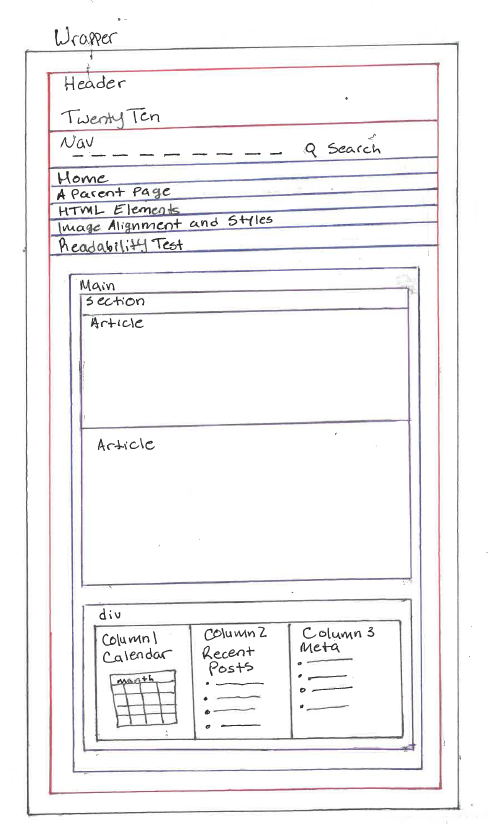 Wrapper
Header
Twenty Ten
Nav
Search
Home
A Parent Page
HTML Elements
Image Alignment and Styles
Readability Test
Main
Section
Article
Article
div
Column 1
Calendar
month
Column 2
Recent
Posts
Column 3
Meta